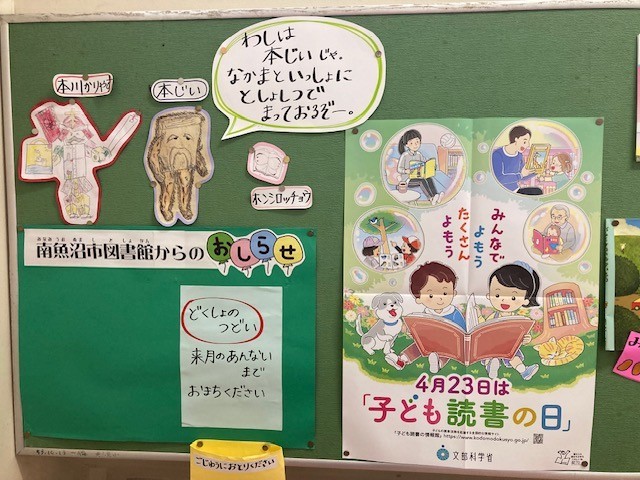 わしは
本じい じゃ。
なかまといっしょに
としょしつで
まっておるぞー。
本川かりやす
本じい
ホンシロッチョウ
みなみうおぬまし としょかん
南魚沼市図書館からの
おしらせ
どくしょの
つどい
来月のあんない
まで
おまちください
ごじゆうにおとりください
みんなで
よもう
たくさん
よもう
4月23日は
「子ども読書の日」
「子ども読書の情報館」https://www.kodomodokusyo.go.jp/
文部科学省